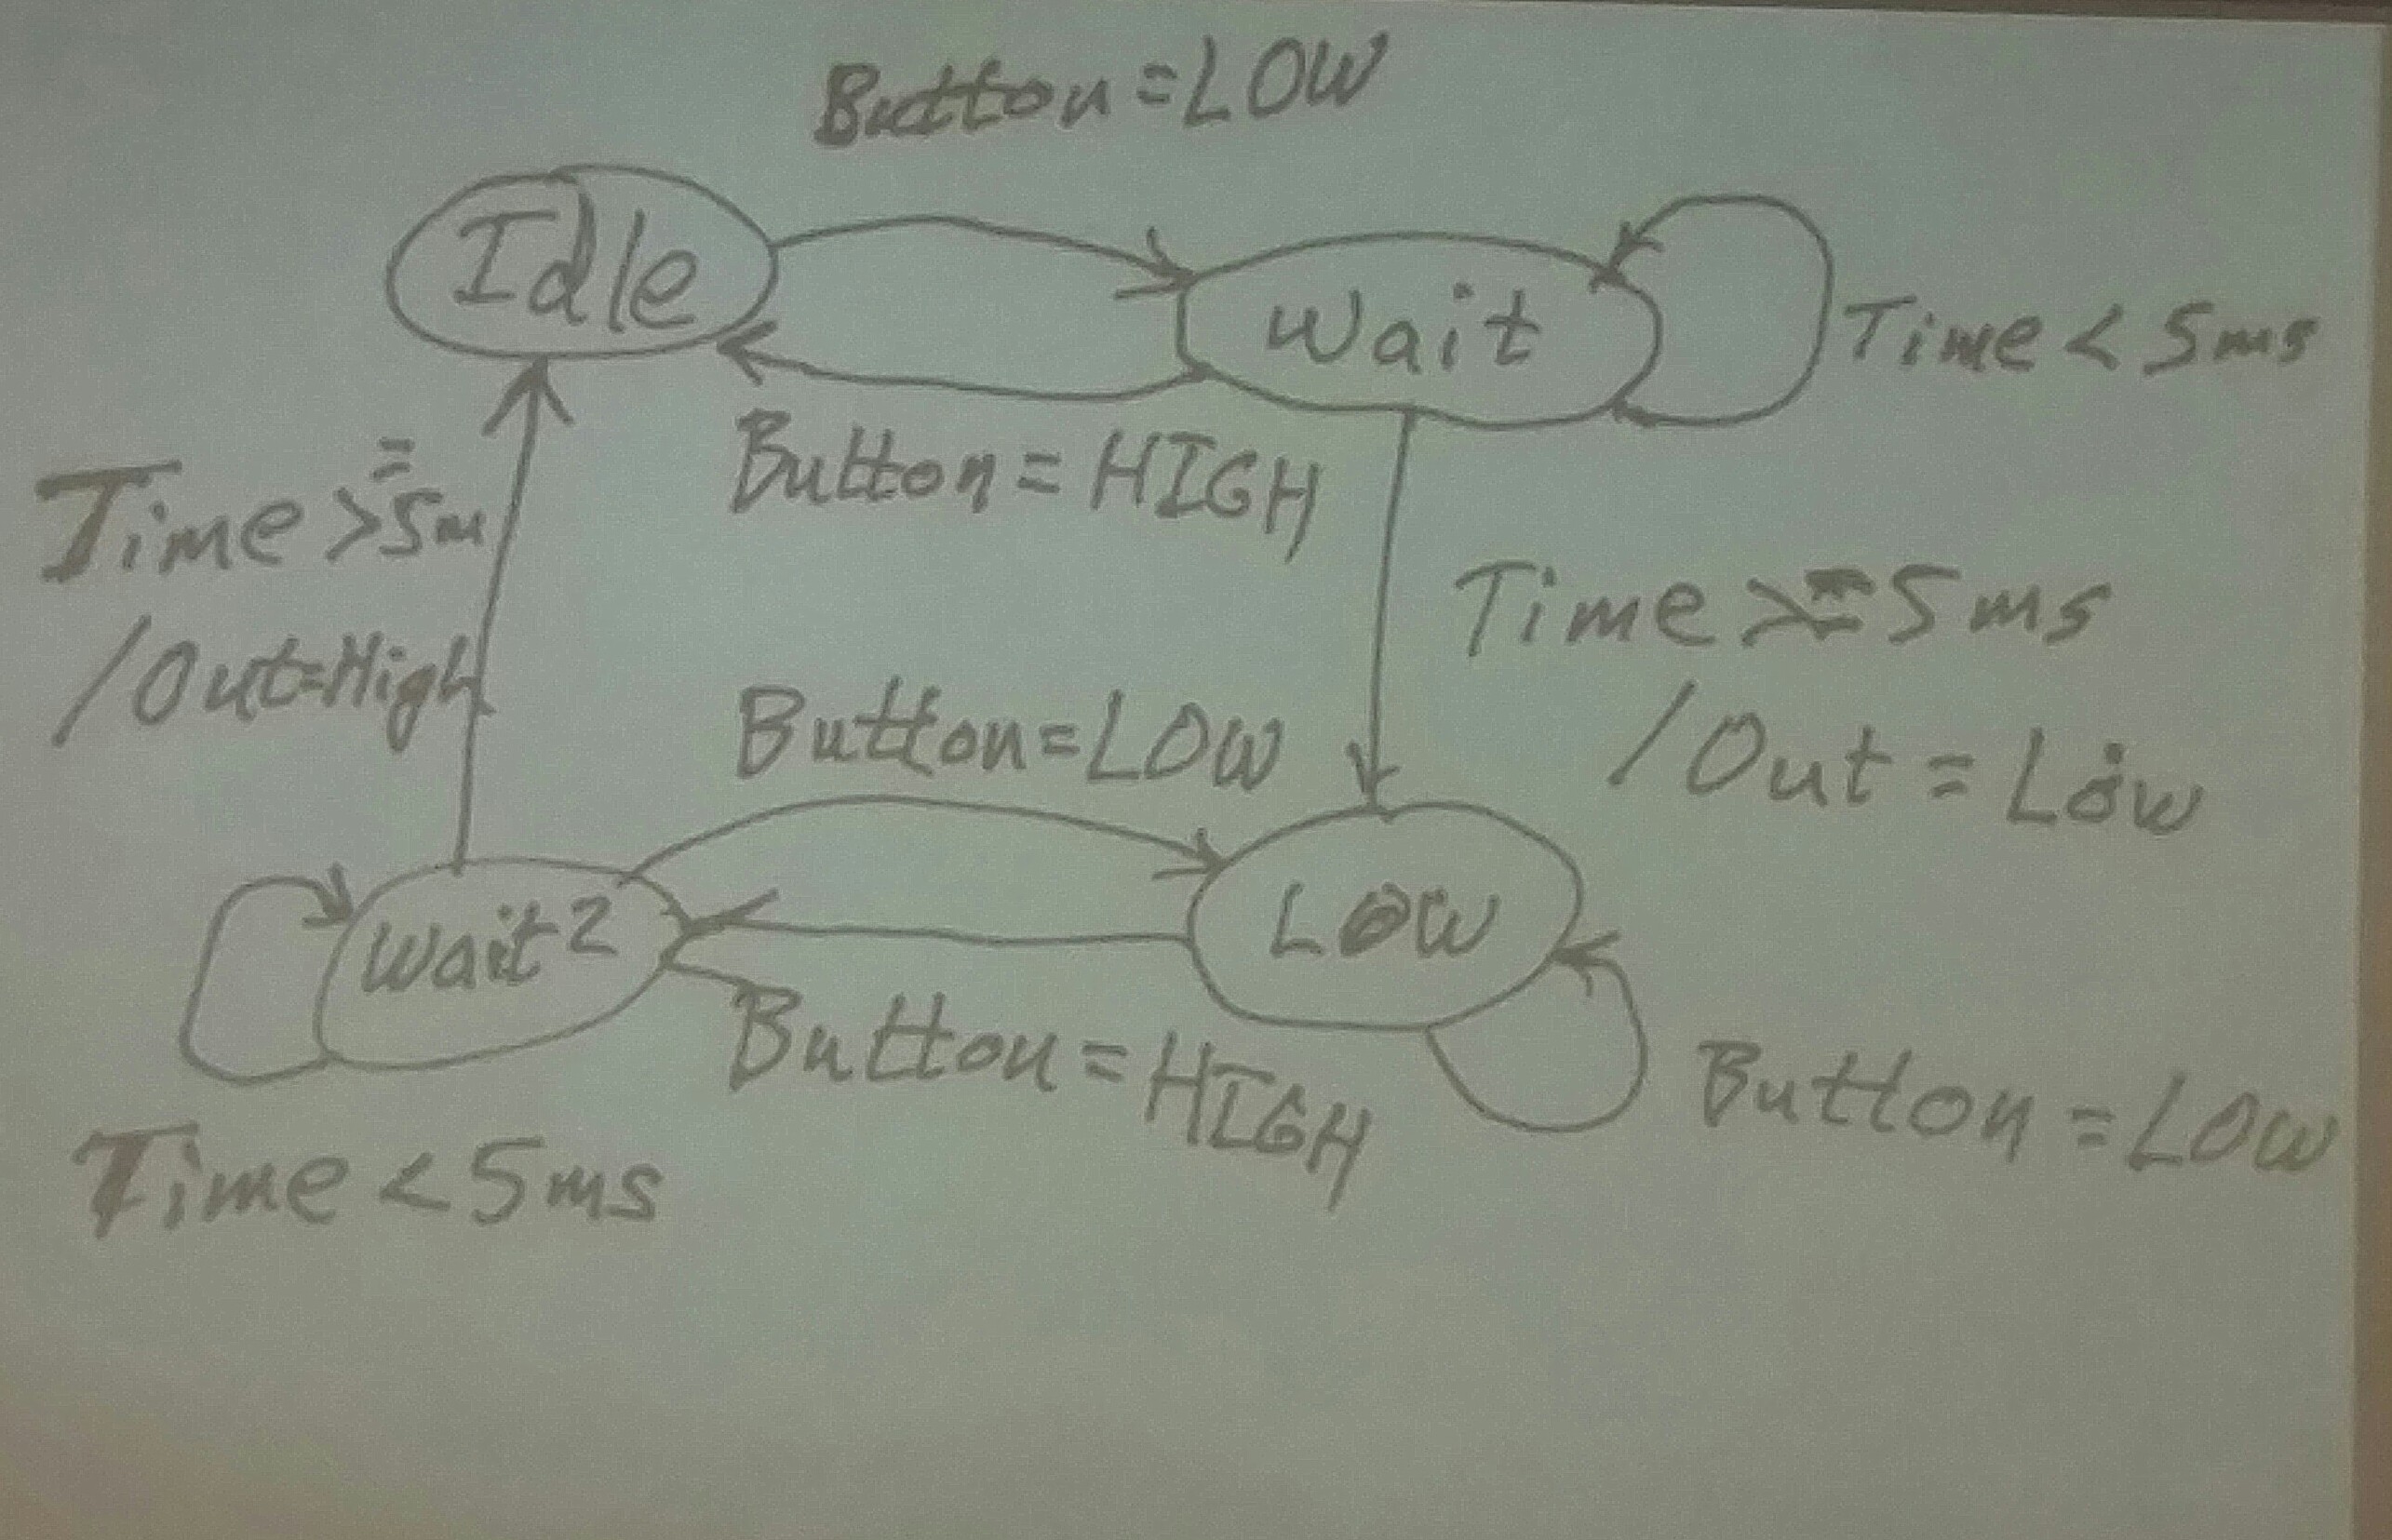 Button=LOW
Idle
Wait
Time < 5ms
Button = HIGH
Time >= 5m
/Out=High
Time >= 5ms
/Out = Low
Button=LOW
Wait2
LOW
Button = HIGH
Button = LOW
Time < 5ms